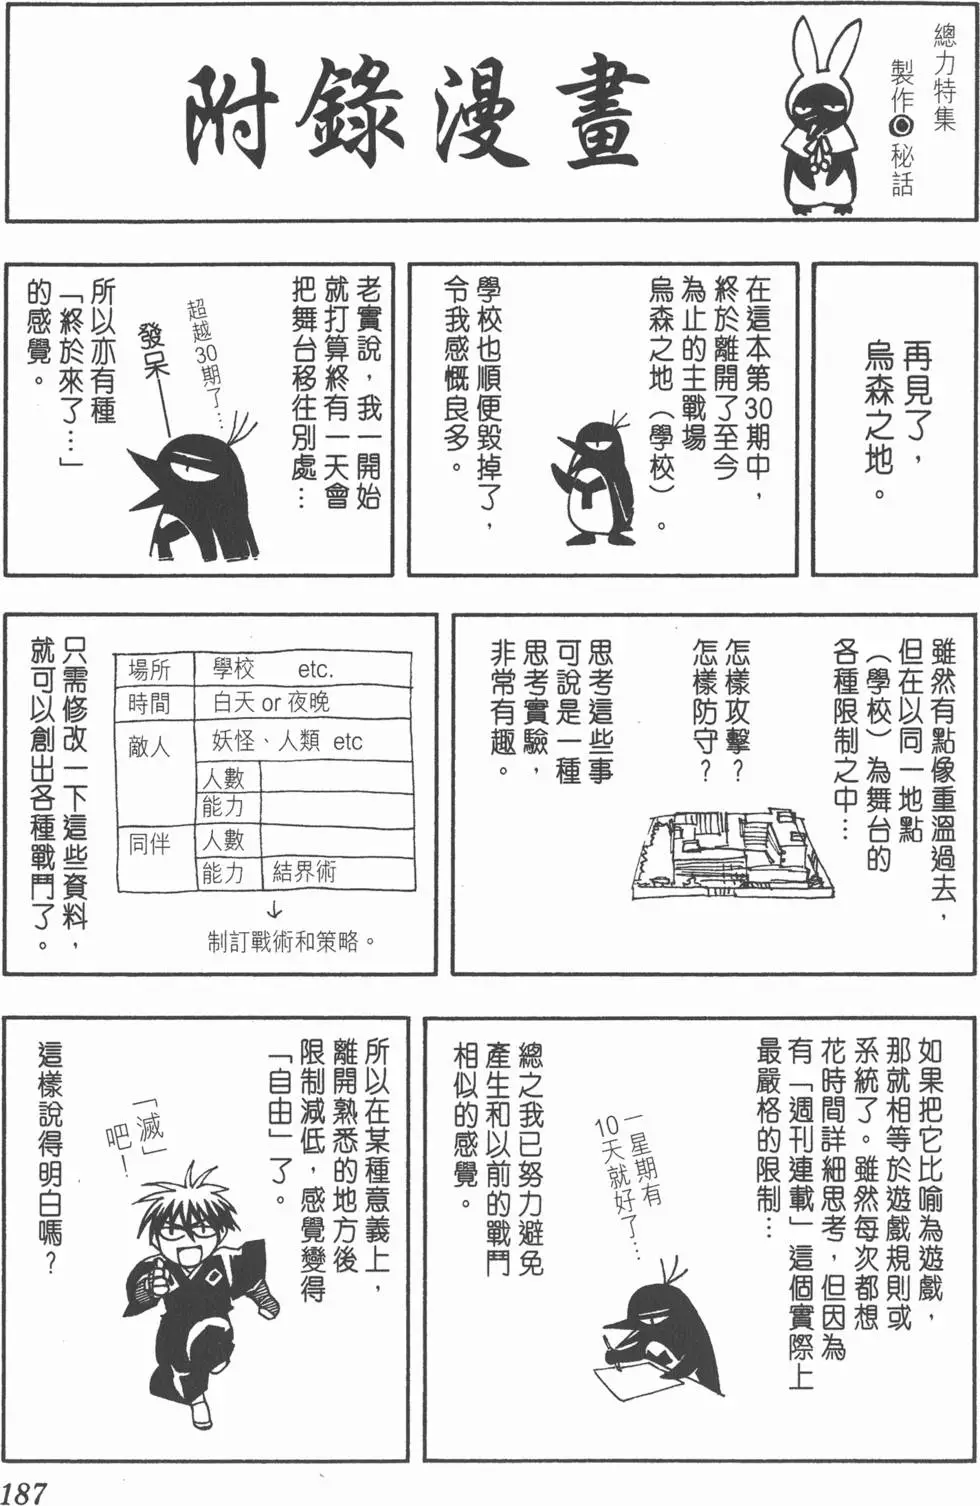 總力特集
製作◎秘話
附錄漫畫
再見了，
烏森之地。
在這本第30期中，
終於離開了至今
為止的主戰場
烏森之地（學校）。
學校也順便毀掉了，
令我感慨良多。
老實說，我一開始
就打算終有一天會
把舞台移往別處…
超越30期了…
發呆
所以亦有種
「終於來了…」
的感覺。
雖然有點像重溫過去，
但在以同一地點
（學校）為舞台的
各種限制之中…
怎樣攻擊？
怎樣防守？
思考這些事
可說是一種
思考實驗，
非常有趣。
場所 學校 etc.
時間 白天 or 夜晚
敵人 妖怪、人類 etc
人數
能力
同伴 人數
能力 結界術
↓
制訂戰術和策略。
只需修改一下這些資料，
就可以創出各種戰鬥了。
如果把它比喻為遊戲，
那就相等於遊戲規則或
系統了。雖然每次都想
花時間詳細思考，但因為
有「週刊連載」這個實際上
最嚴格的限制…
一星期有
10天就好了…
總之我已努力避免
產生和以前的戰鬥
相似的感覺。
所以在某種意義上，
離開熟悉的地方後
限制減低，感覺變得
「自由」了。
「滅」
吧！
這樣說得明白嗎？
187